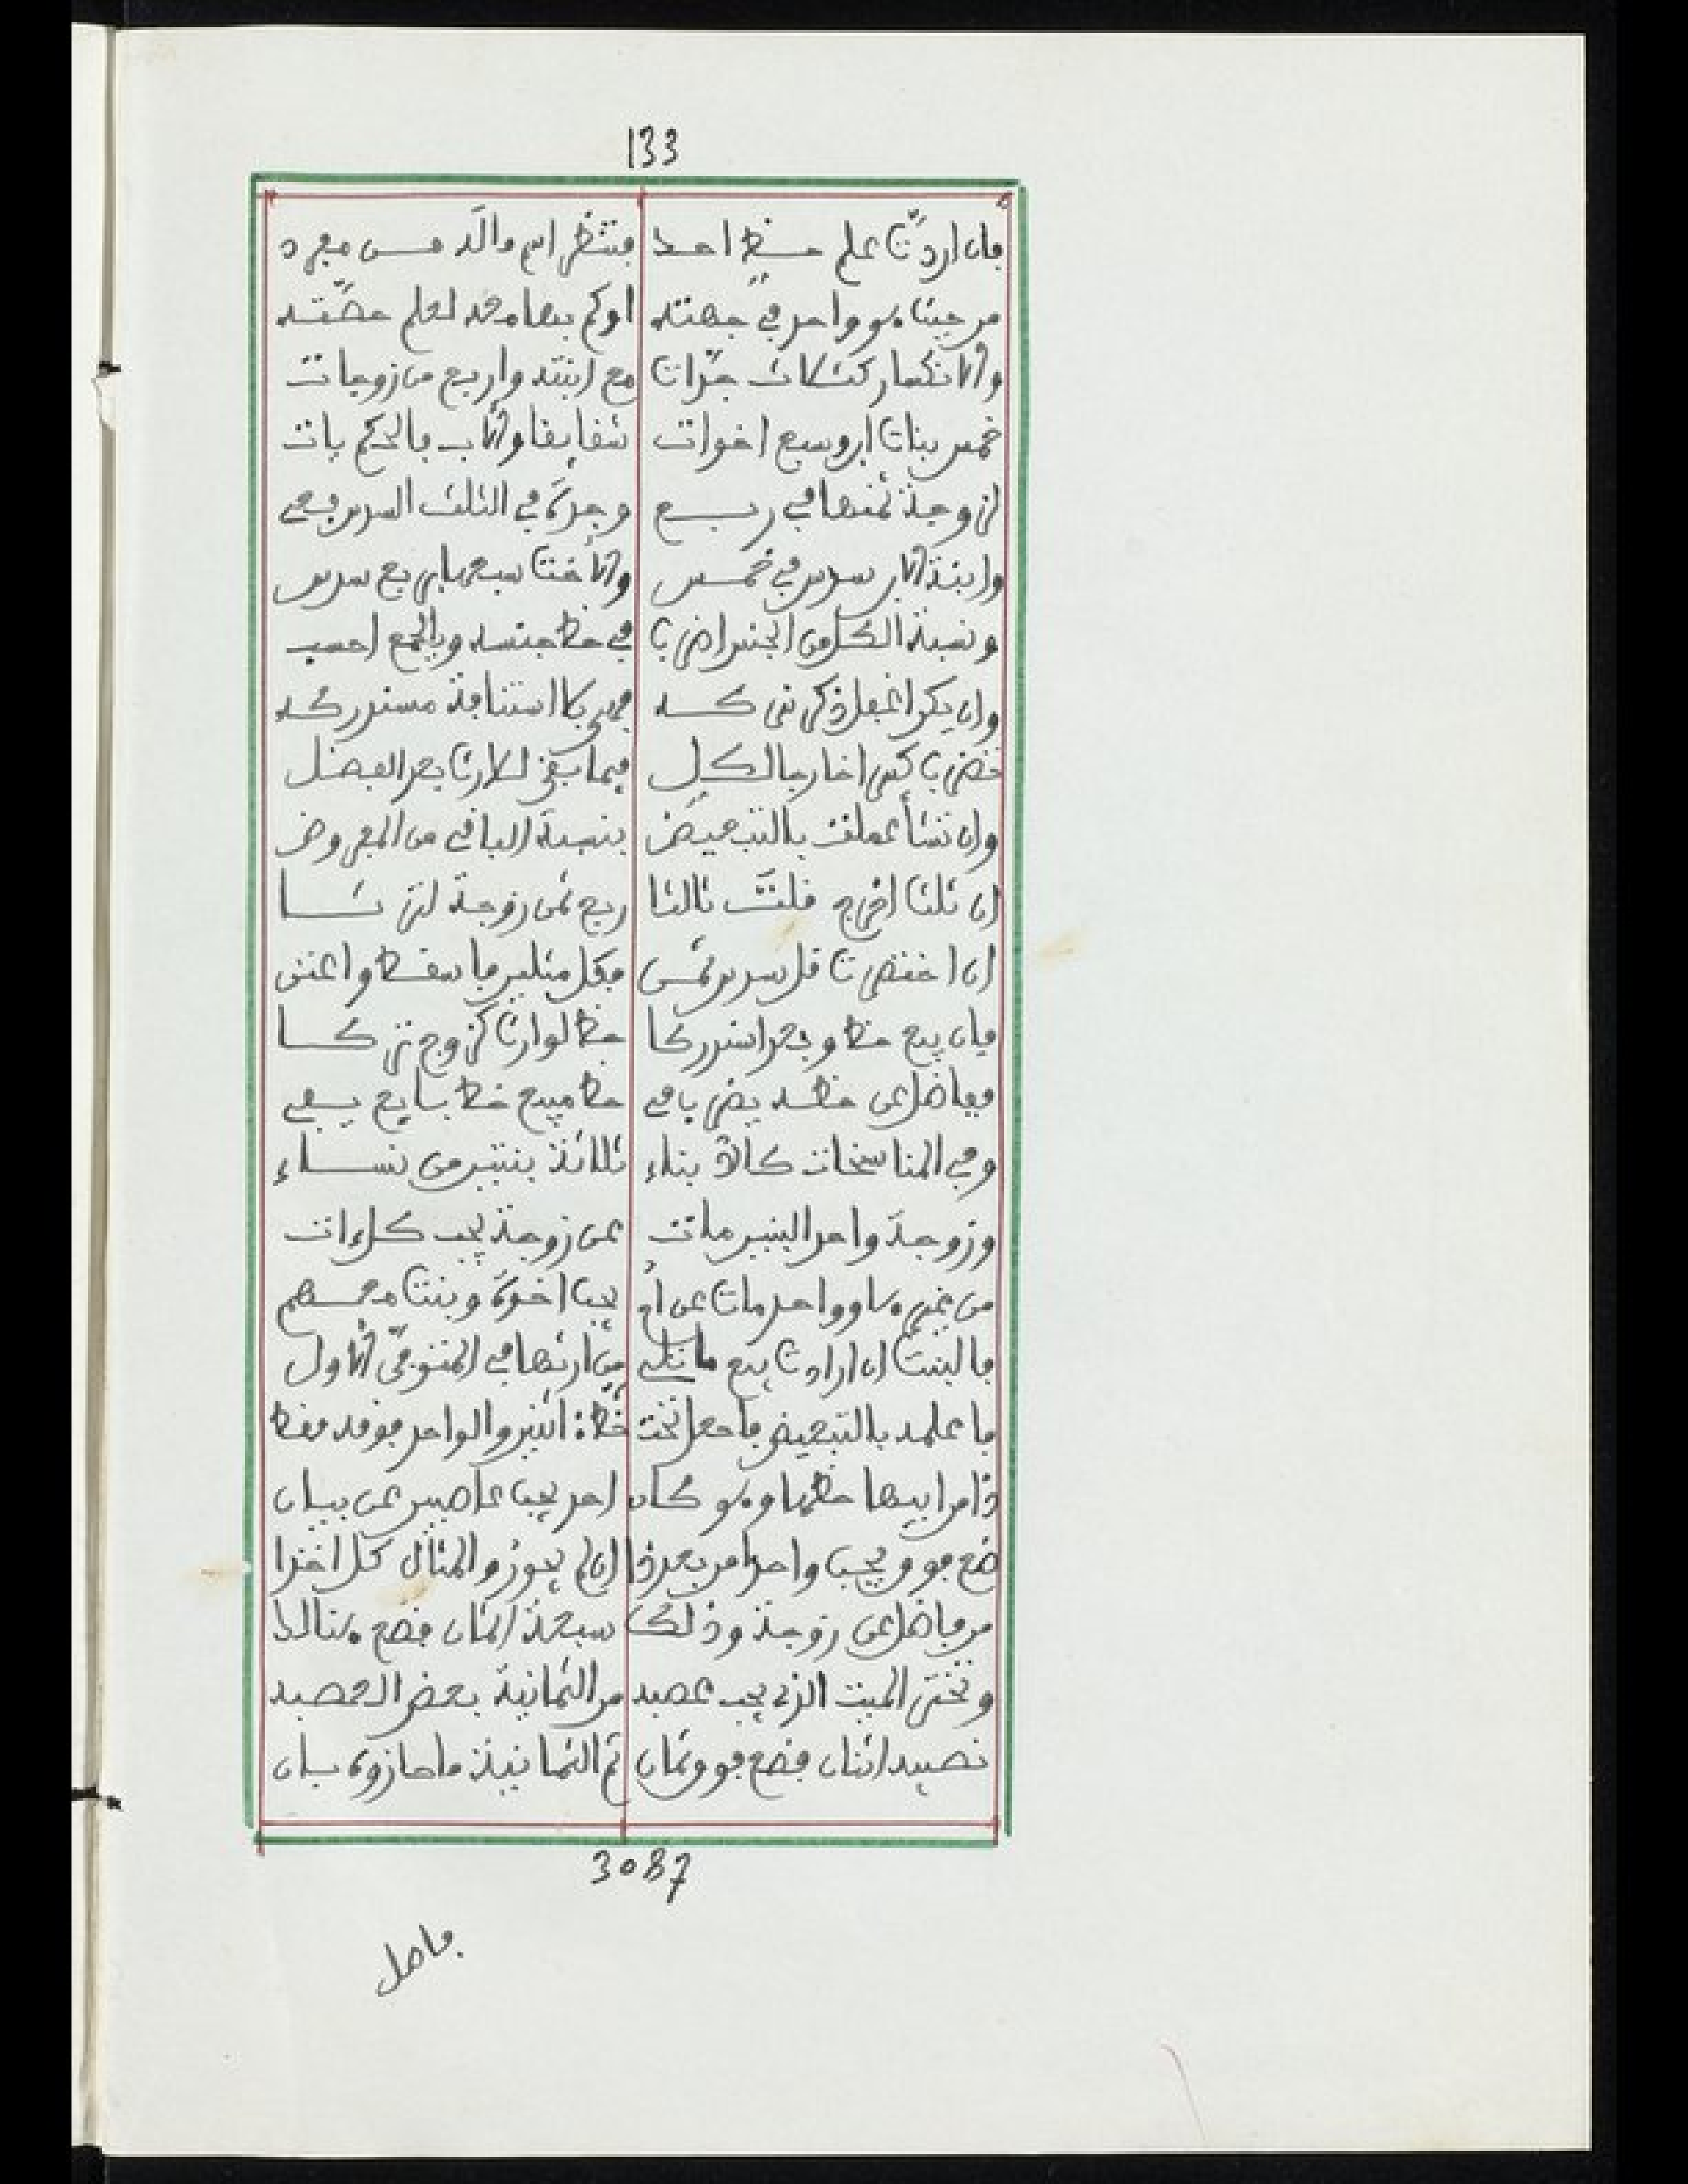 133
فإن اردت علم حظ احد فتنظر اسم والد من مفرد
من جيث هو واحد في جهته او كم بها معه لعلم حصته
والانكسار كثلاث جدات مع ابنته واربع من زوجات
خمس بنات ابن وسبع اخوات شقايقا والاب بالحكم بات
لزوجة ثمنها في ربع وجدة في الثلث السدس فع
وابنة الابن سدس في خمس والاخت سبعها بربع سدس
ونسبة الكل من الجنس اضرب في حظ جنسه وبالجمع احسب
وان يكن اغفل ذكر تركه فهي بكا استنافة مستدركه
فضرب كسر اخارج الكل فيما بقي للارث بعد الفضل
وان تشأ عملت بالتبعيض بنسبة الباقي من المفروض
ان ثلث اخرج فلت ثالثا ربع ثمن زوجة
ان اختصرت قل سدس ثمن فكل مثلين فاسقط واعتن
فإن يبع حظا وبعد استدركا حظ الوارث كزوج تركا
ففاضل عن حظه يضرب في حظ مبيع حظ بايع يفي
وفي المناسخات كالابناء ثلاثة بنتين من نساء
وزوجة واحد البنين مات عن زوجة يحجب كل ءات
من غيره او واحد مات عن ام يحجب اخوة وبنت معهم
فالبنت ان ارادت بيع ما تلي من ارثها في المتوفى الاول
فاعلمه بالتبعيض فاجعل تحت خط: اثنين والواحد فوقه فقط
ذا من ابيها حظها وهو كان احد يحجب عاصبين عن بيان
ضع فوق يحجب واحدا من بعد ذا ان لم يحوز والمثال كل اخذا
من فاضل عن زوجة وذلك سبعة اثمان فضع هنالك
وتحت الميت الذي يحجب عصبه من الثمانية بعض العصبه
نصيبه اثنان فضع فوق ثمان ثم الثمانية ما حازوه بان
3087
فاصل